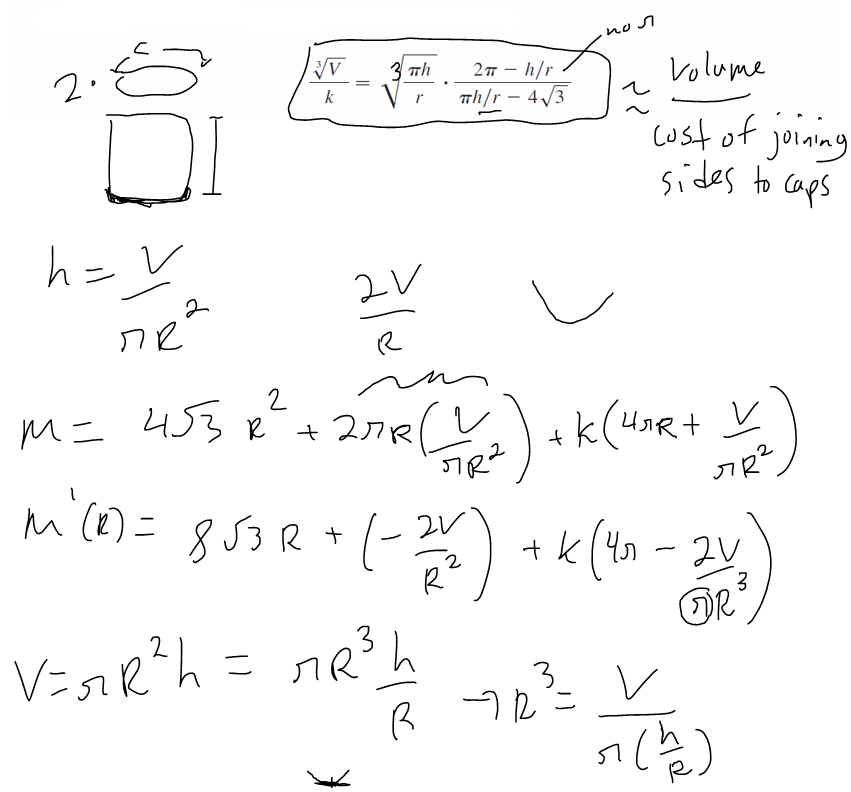 c
no π
2·
∛V / k = ∛(πh / r) · (2π − h/r) / (πh/r − 4√3)
≈ Volume / cost of joining sides to caps
h = V / πR²
2V / R
m = 4√3 R² + 2πR(V / πR²) + k(4πR + V / πR²)
m'(R) = 8√3 R + (− 2V / R²) + k(4π − 2V / πR³)
V = πR²h = πR³ h / R → R³ = V / π(h / R)